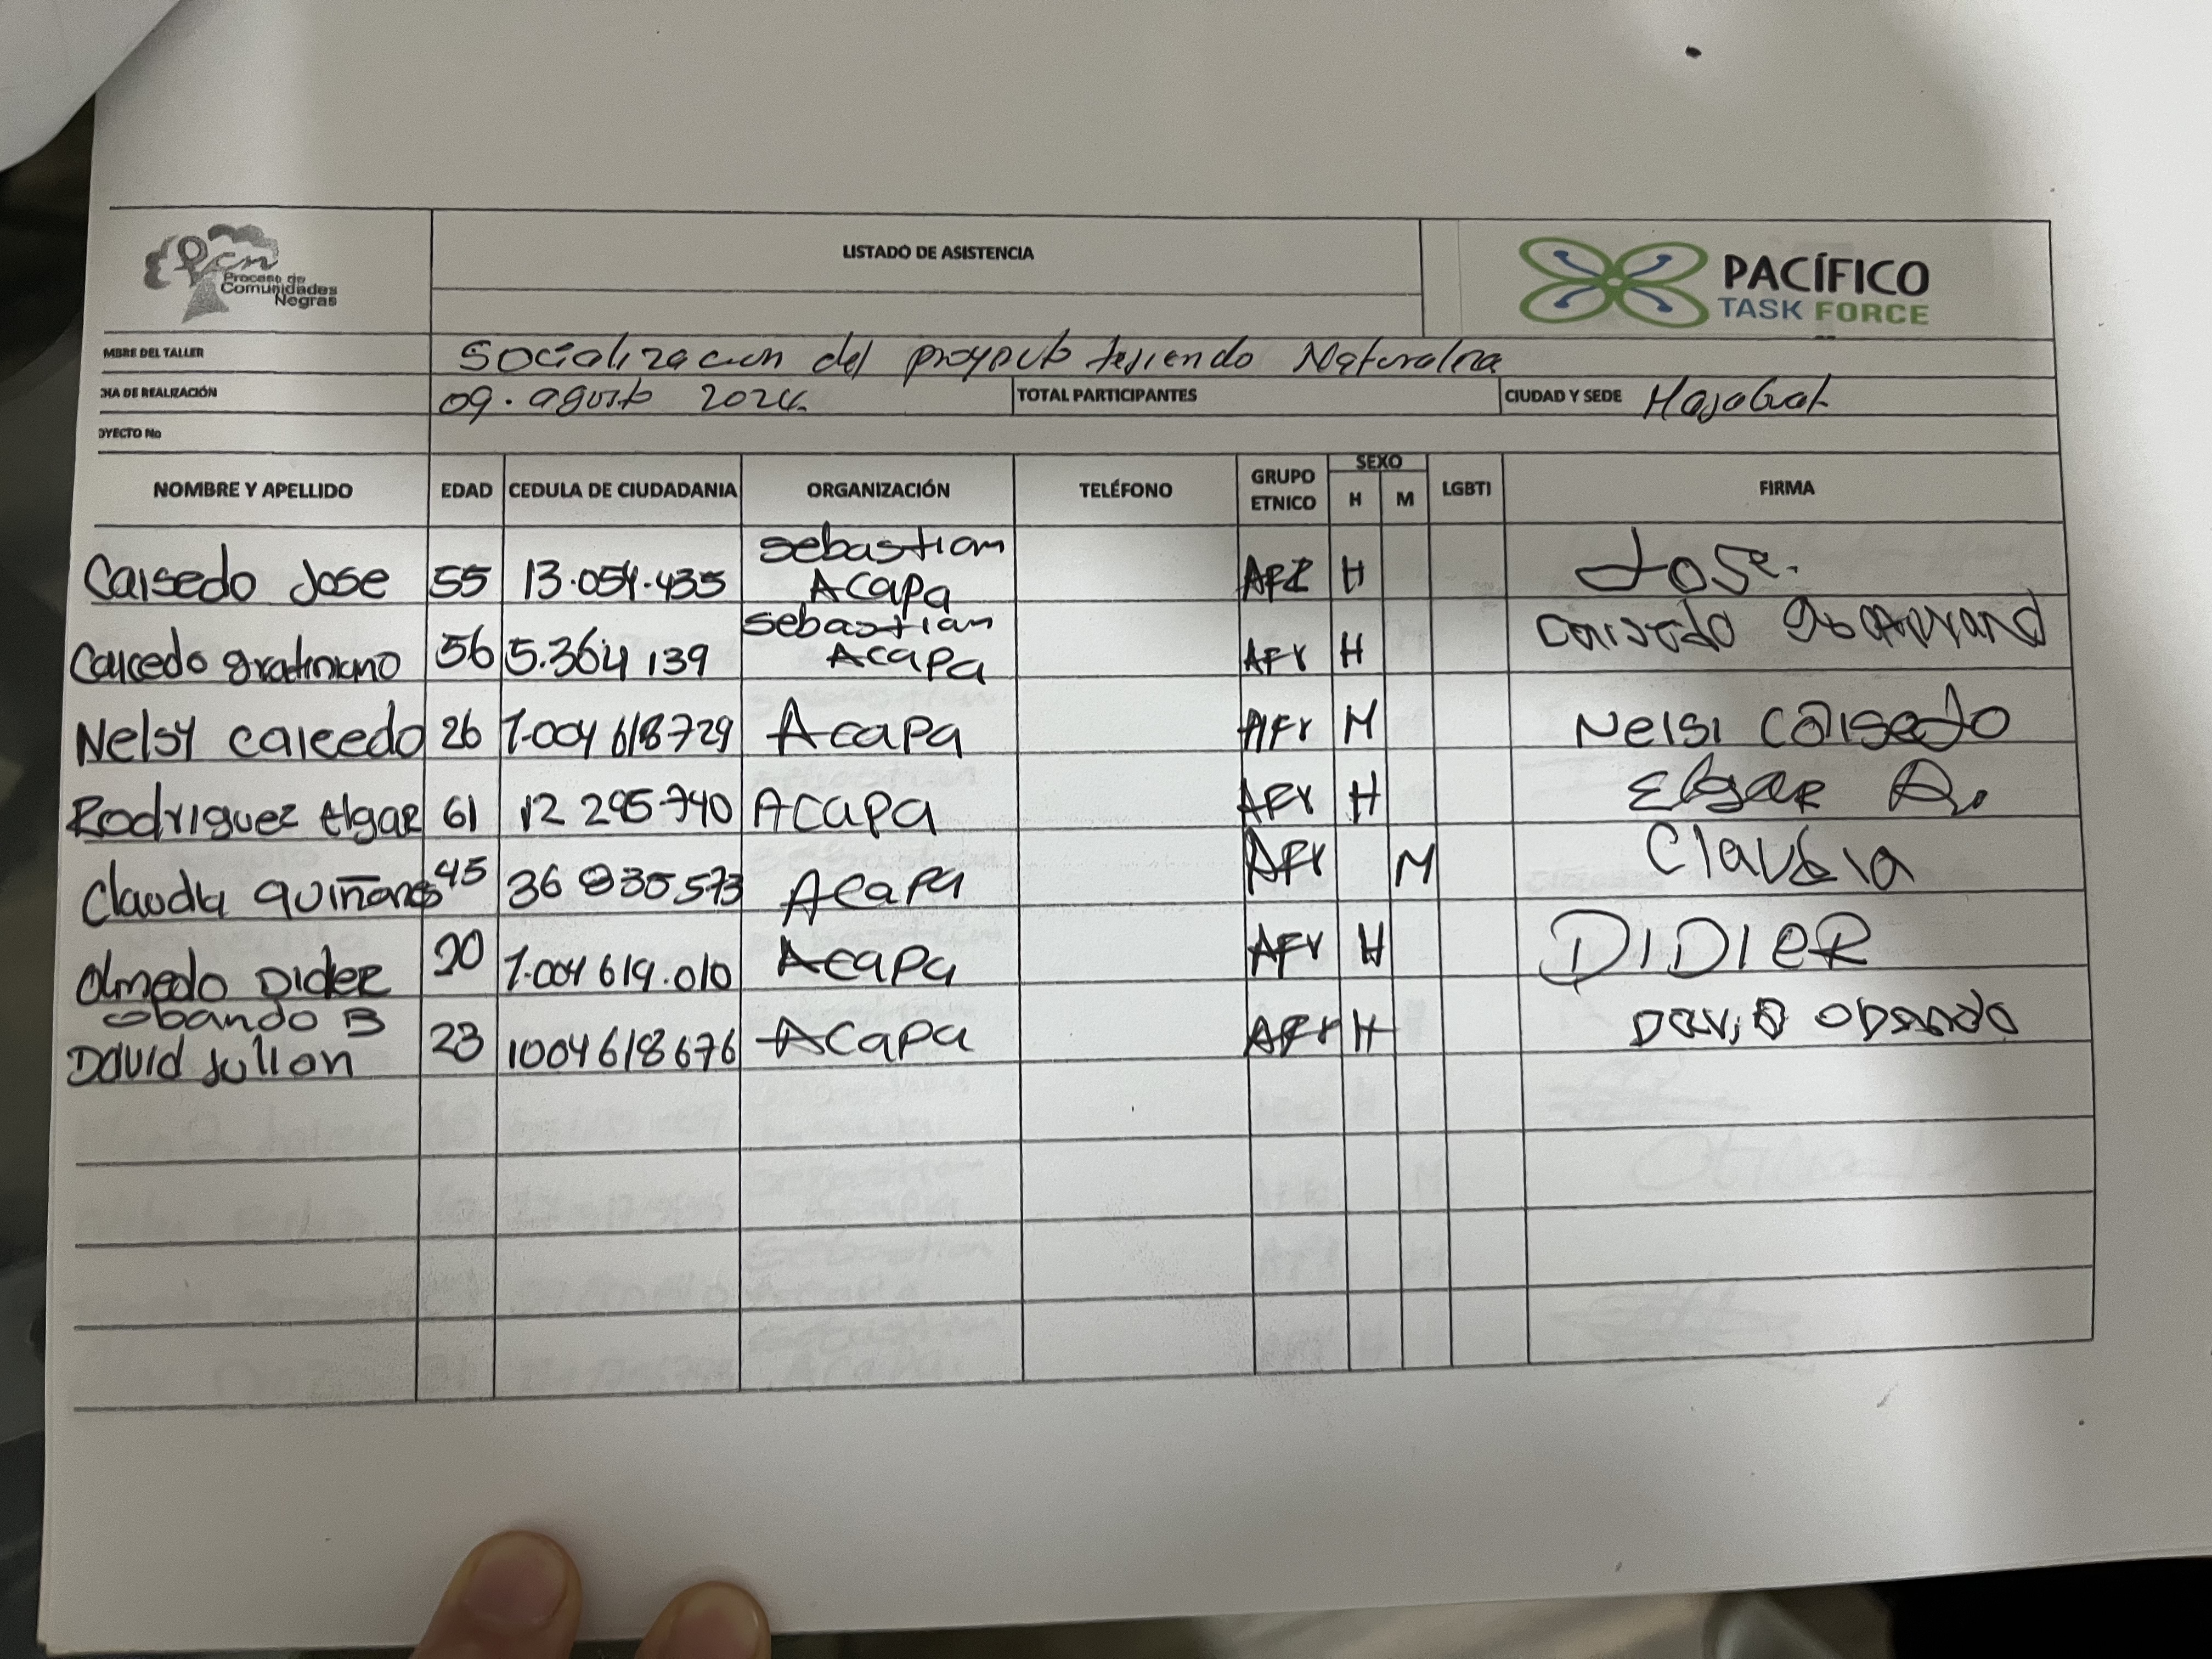 Pcn
Proceso de
Comunidades
Negras
LISTADO DE ASISTENCIA
PACÍFICO
TASK FORCE
MBRE DEL TALLER Socializacion del proyecto tejiendo Naturaleza
CHA DE REALIZACIÓN 09. agosto 2024. TOTAL PARTICIPANTES CIUDAD Y SEDE Majagual
OYECTO No
NOMBRE Y APELLIDO EDAD CEDULA DE CIUDADANIA ORGANIZACIÓN TELÉFONO GRUPO ETNICO SEXO H M LGBTI FIRMA
sebastian
Caisedo Jose 55 13.054.435 Acapa AFR H Jose.
sebastian
Caicedo gratiniano 56 5.364 139 Acapa AFr H Caisedo
Nelsy caicedo 26 1.004 618729 Acapa AFr M Nelsi Caisedo
Rodriguez Elgar 61 12 295740 Acapa AFr H Elgar R.
Claudia quiñones 45 36 830573 Acapa AFr M Claudia
Olmedo Dider 20 1.004 619.010 Acapa AFr H DIDIER
obando B
David Julian 23 1004618676 Acapa AFr H David obando